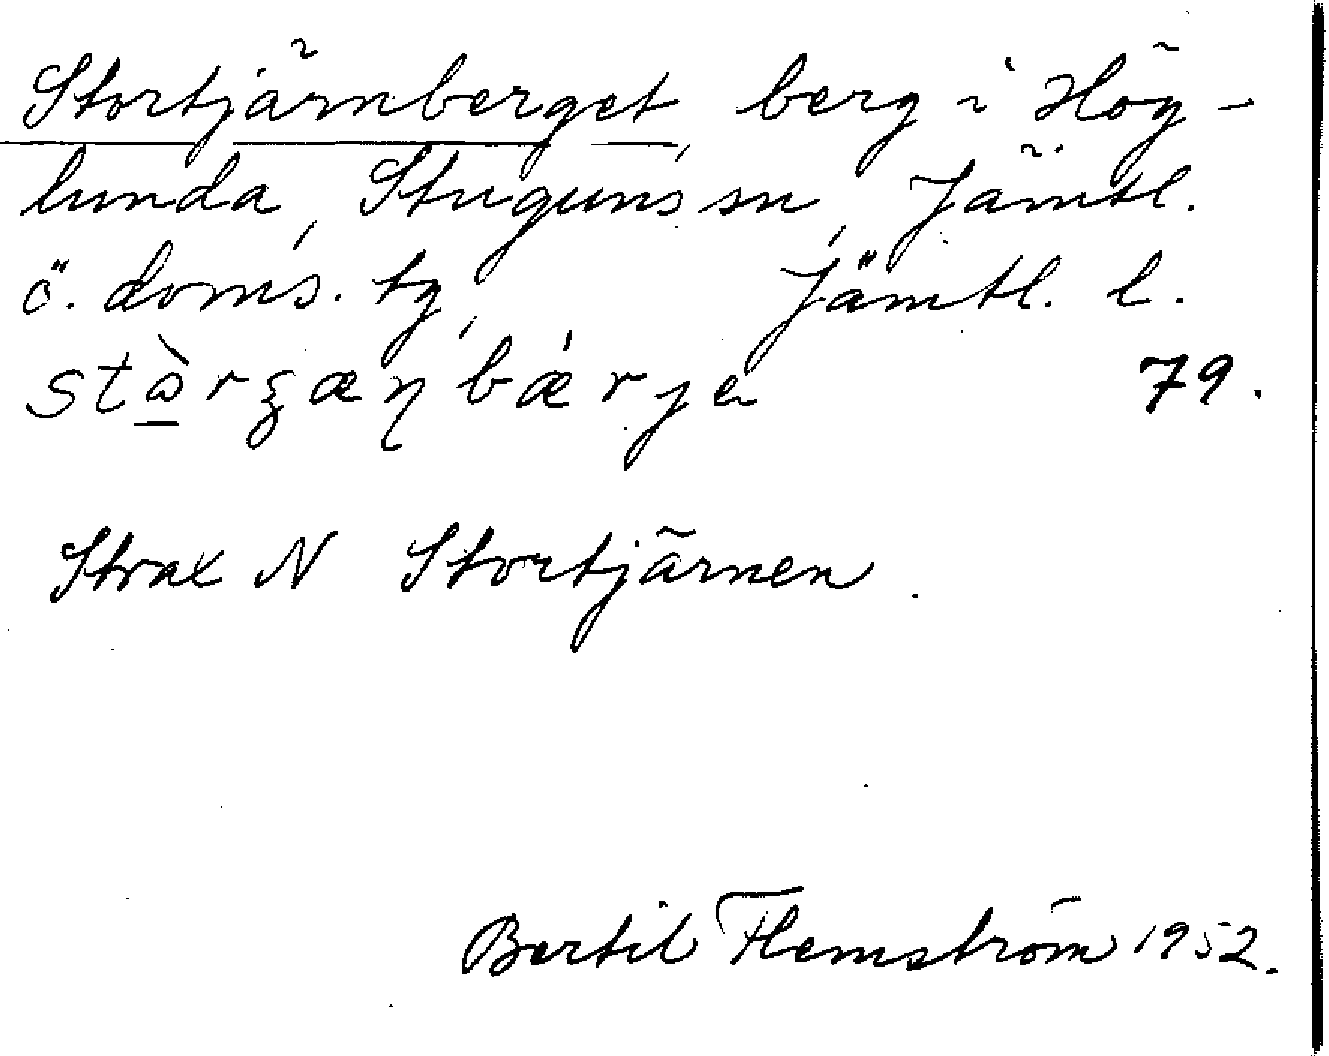 Stortjärnberget, berg i Hög-
lunda, Stuguns sn, Jämtl.
ö. doms. tg, Jämtl. l.
79.
Strax N Stortjärnen.
Bertil Flemström 1952.